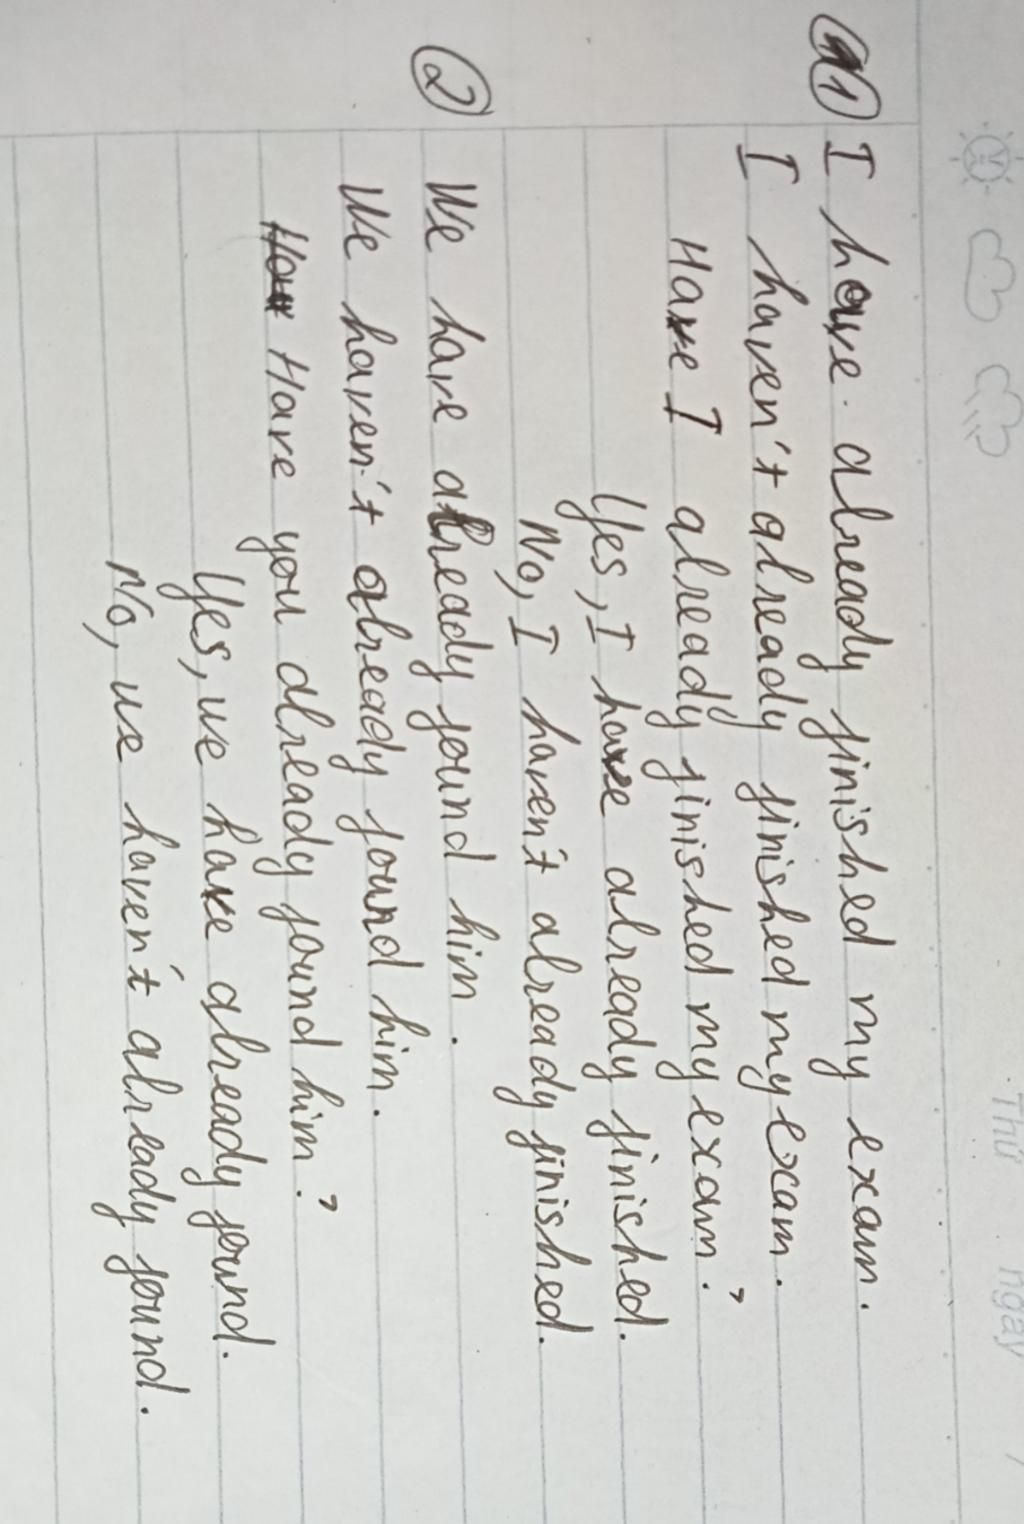 Thứ ngày /
1 I have already finished my exam.
I haven't already finished my exam.
Have I already finished my exam?
Yes, I have already finished.
No, I haven't already finished.
2 We have already found him.
We haven't already found him.
Have you already found him?
Yes, we have already found.
No, we haven't already found.